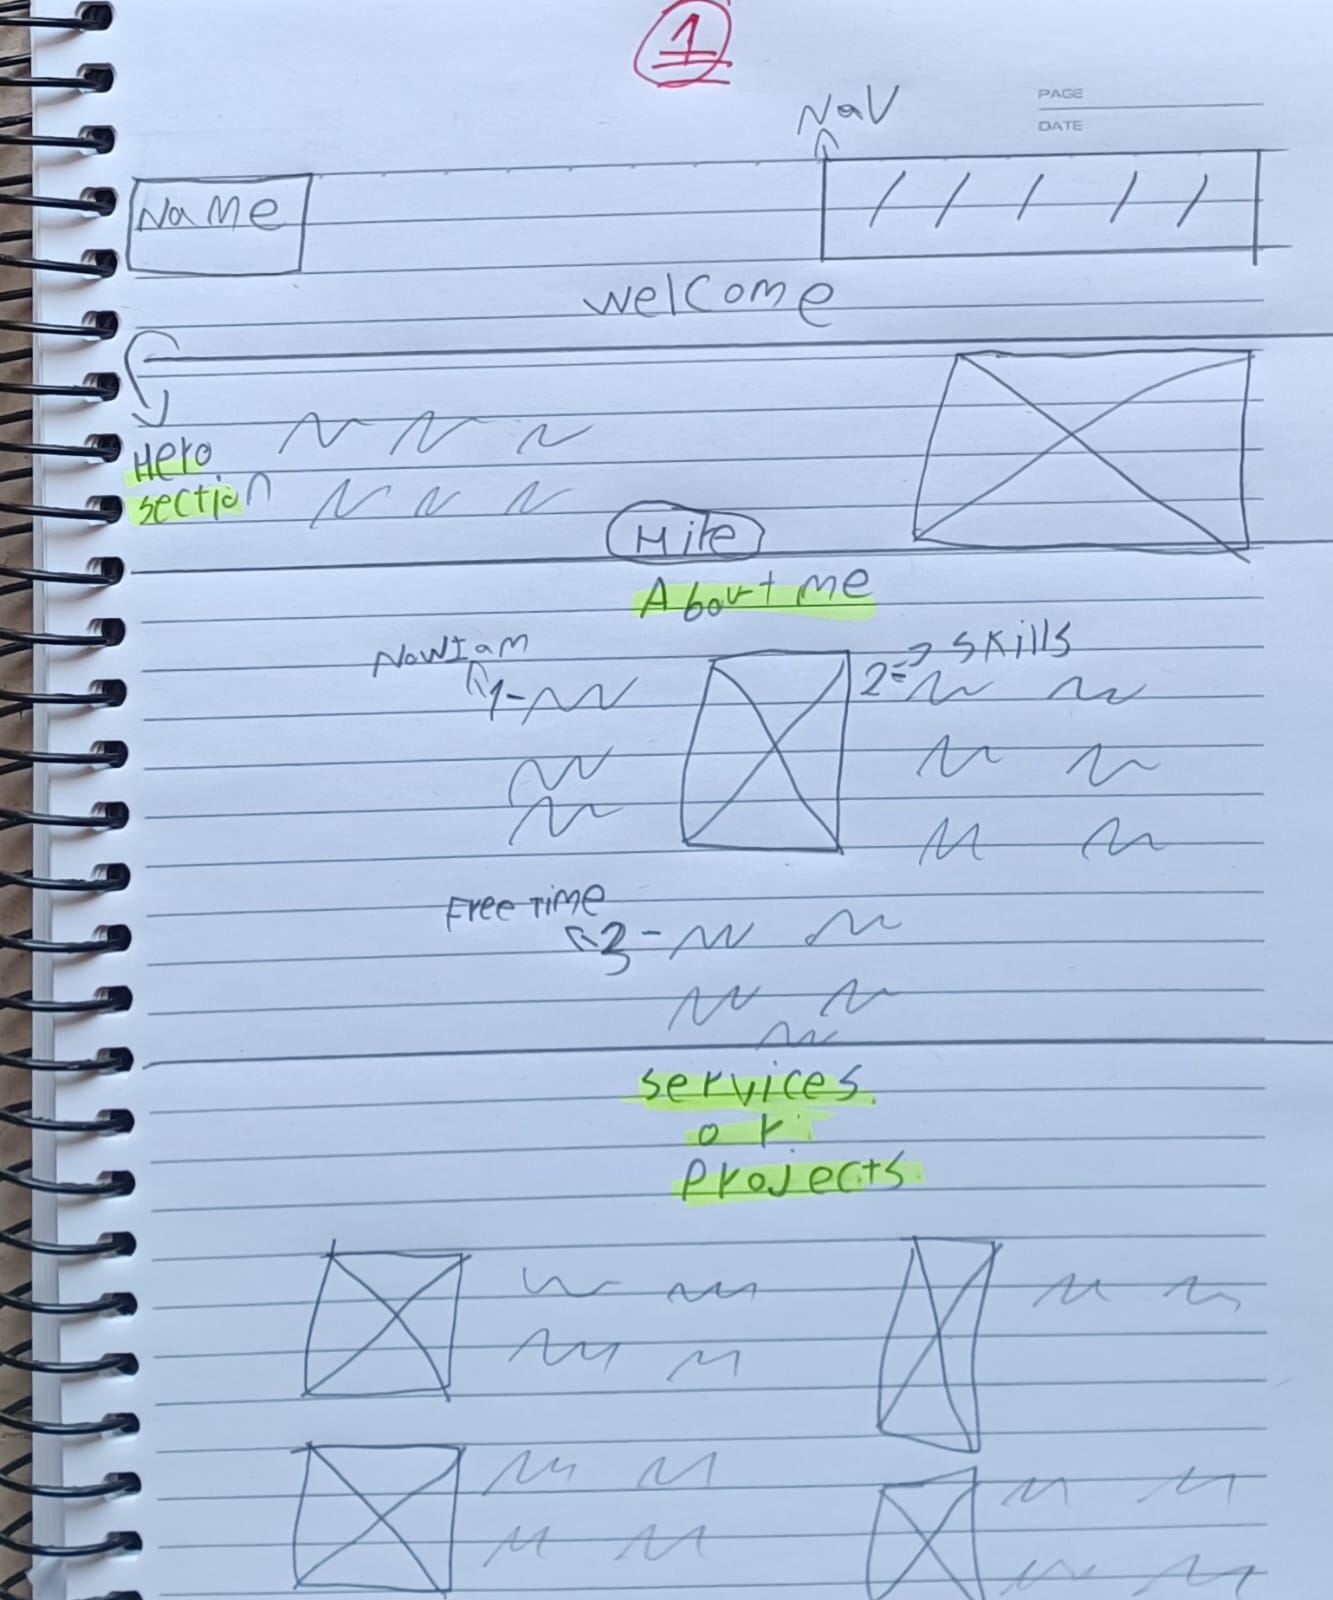 1
NaV
PAGE
DATE
NaMe
welcome
Hero
section
Hire
About me
NowIam
1-
2= skills
Free Time
3-
services
or
Projects